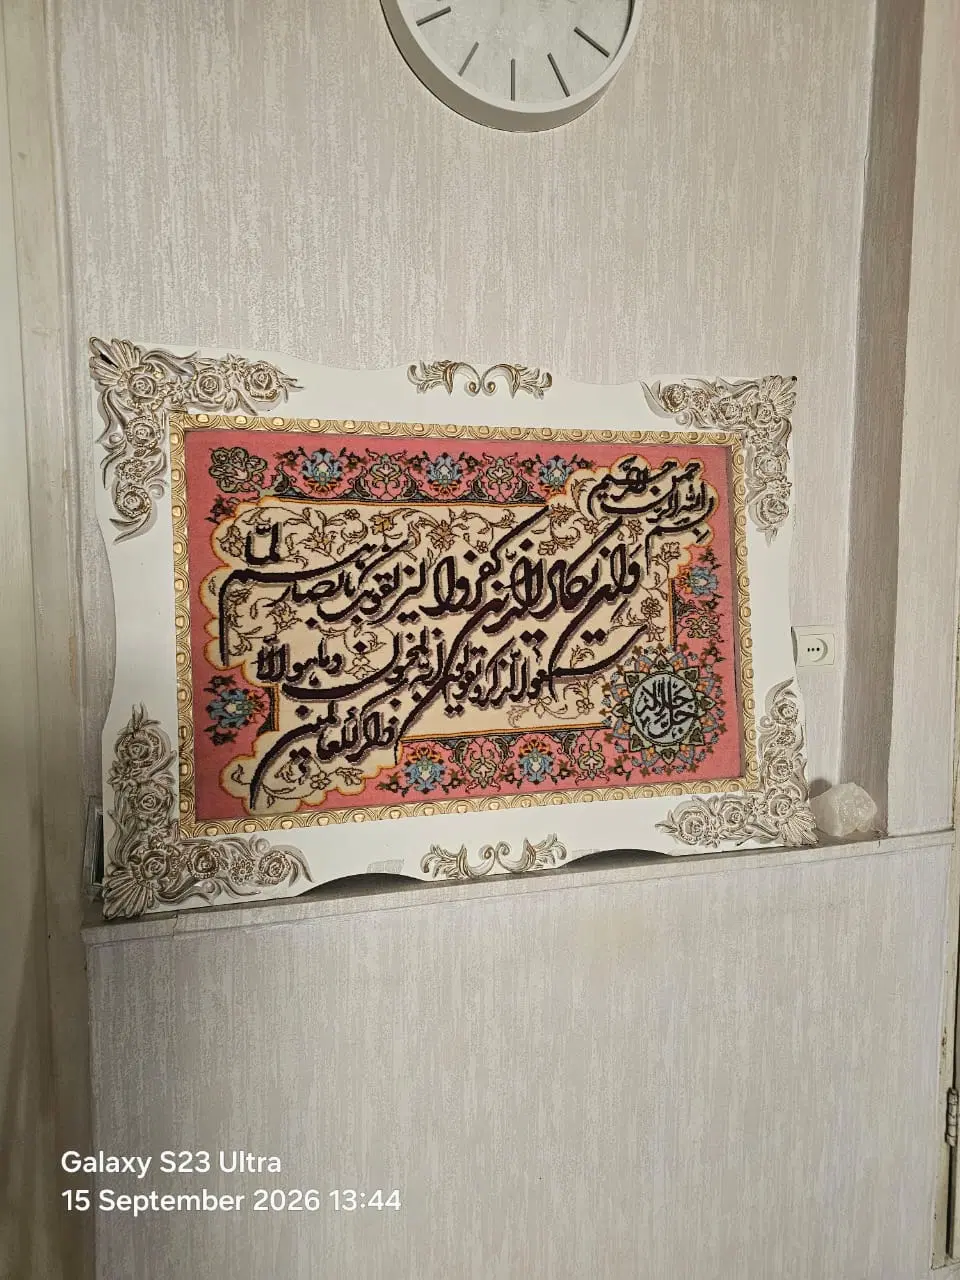 بسم الله الرحمن الرحیم
وان یکاد الذین کفروا لیزلقونک بابصارهم لما
سمعوا الذکر و یقولون انه لمجنون وما هو الا
ذکر للعالمین
جل جلاله
Galaxy S23 Ultra
15 September 2026 13:44